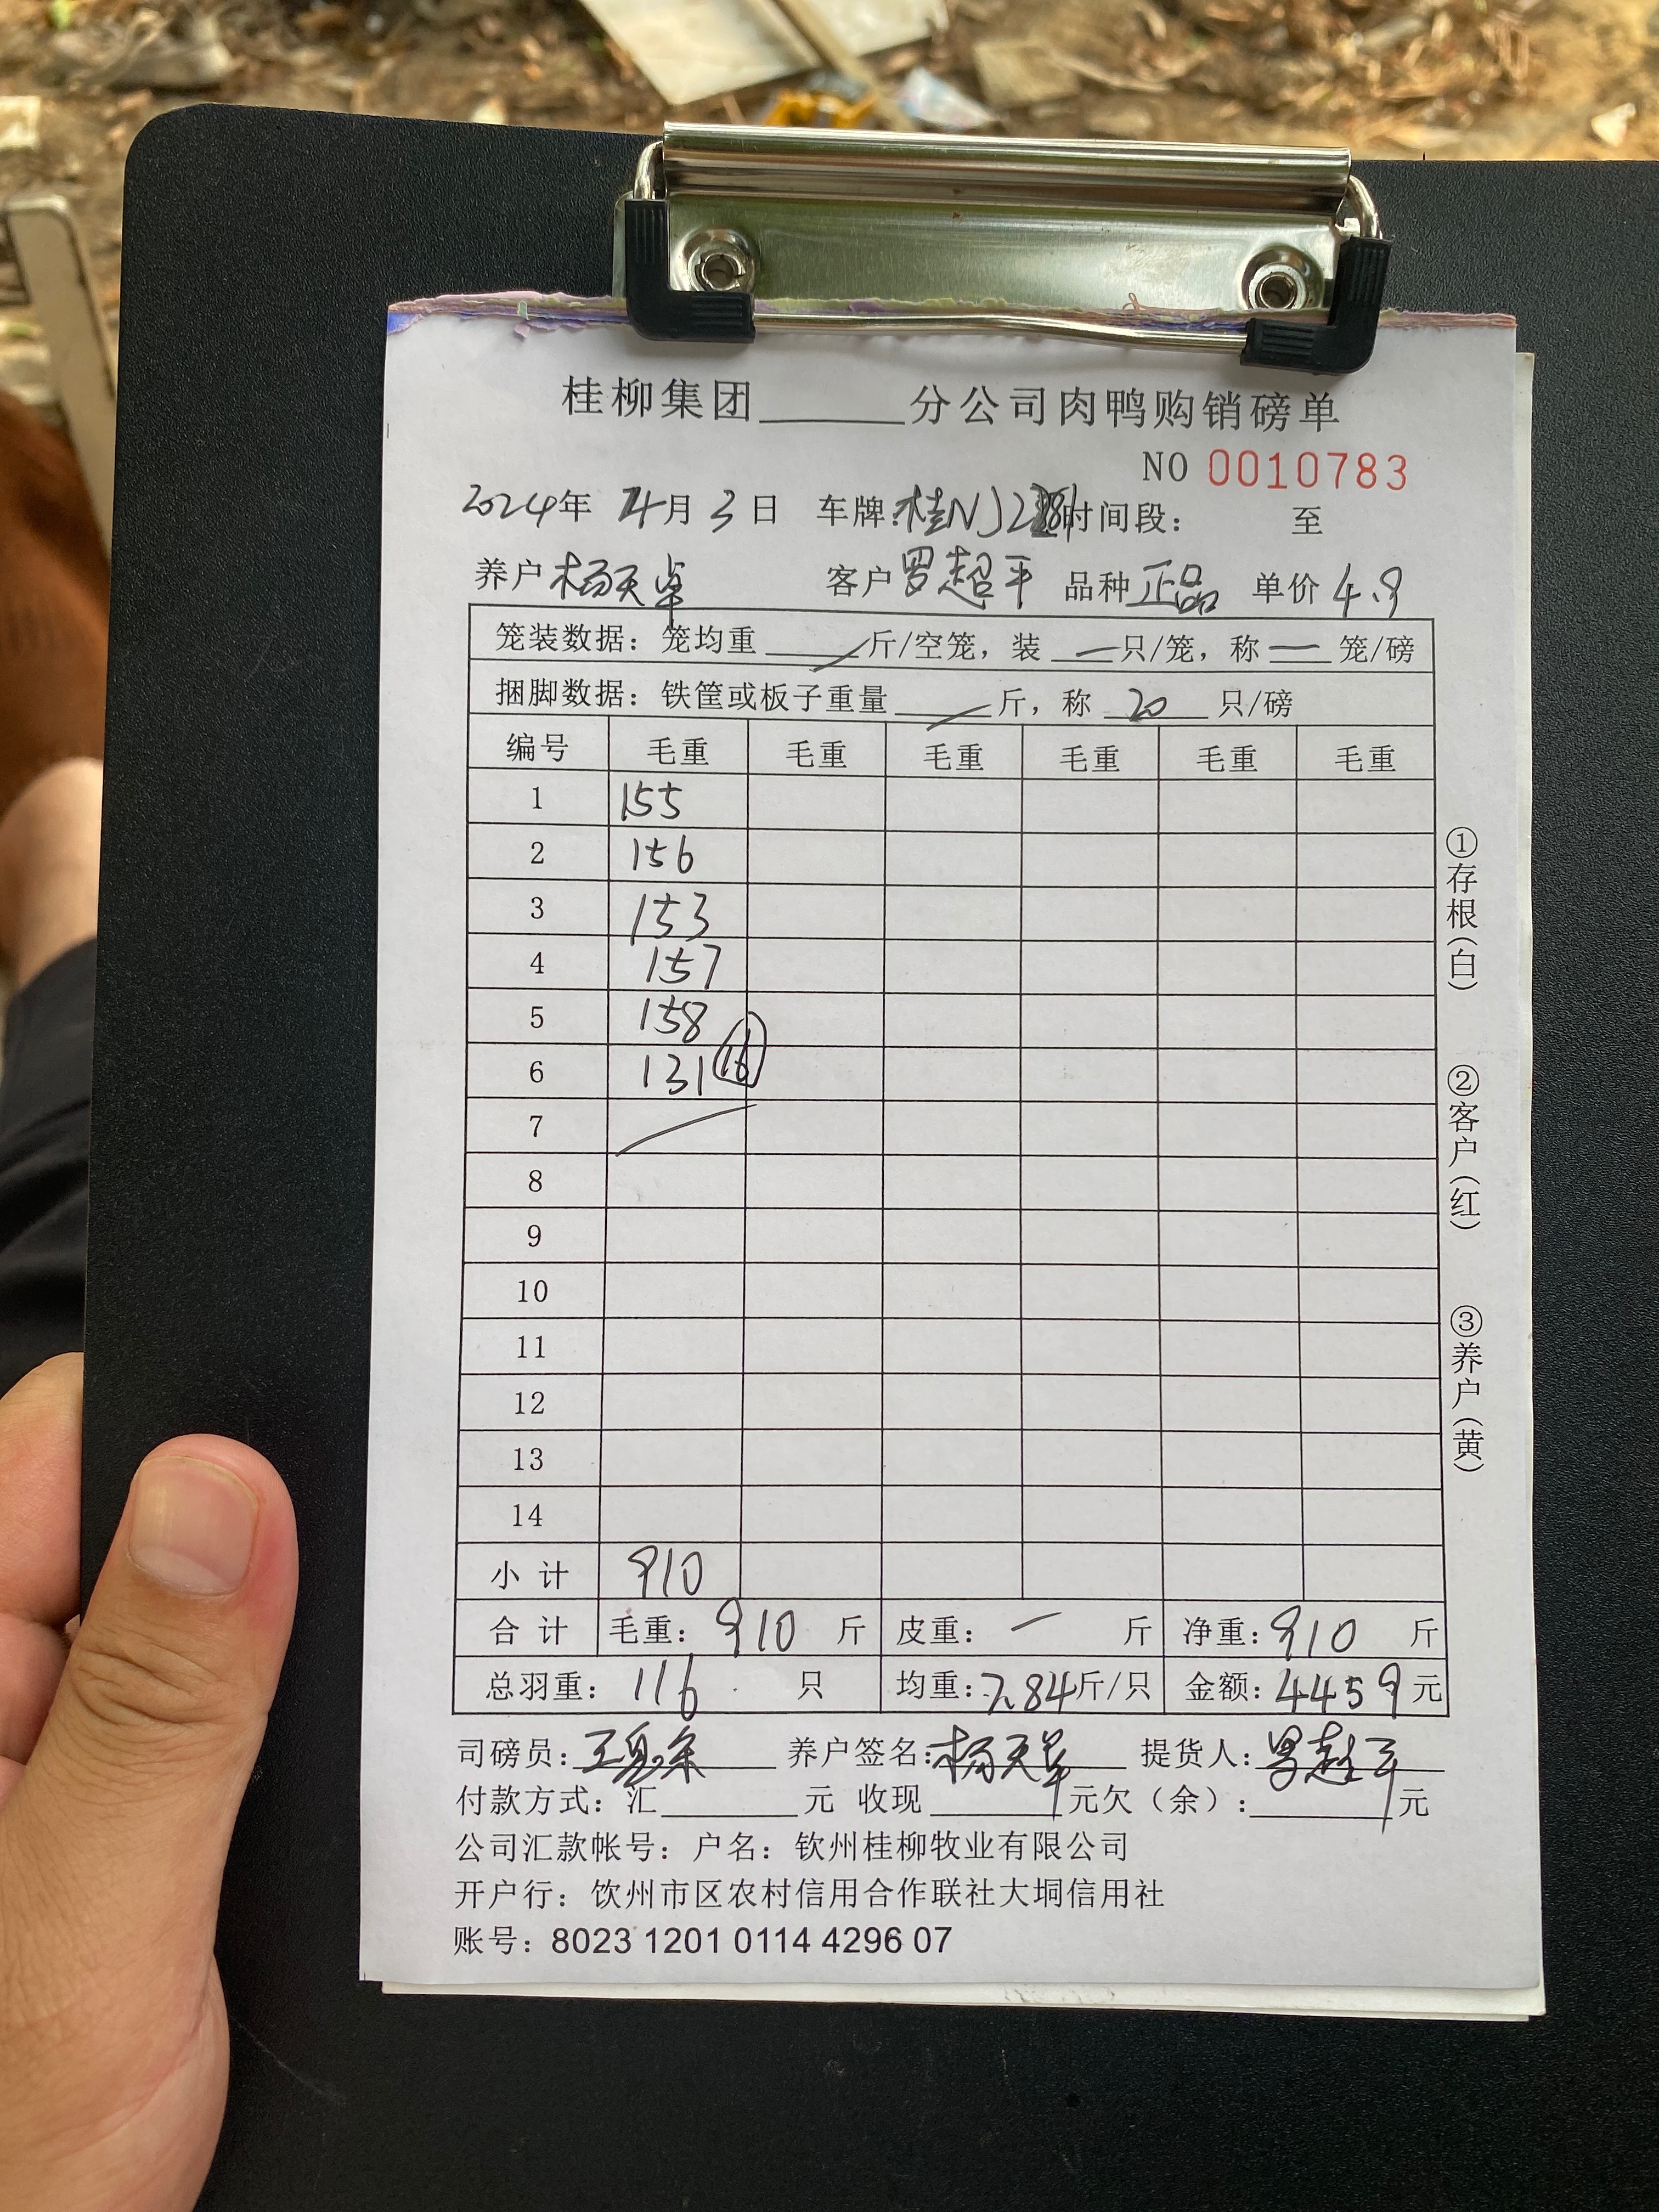 桂柳集团______分公司肉鸭购销磅单
NO 0010783
2024年 4月 3日 车牌:桂NJ2 时间段: 至
养户 杨天卓 客户 罗超平 品种 正品 单价 4.9
笼装数据: 笼均重 ____斤/空笼, 装 —只/笼, 称 — 笼/磅
捆脚数据: 铁筐或板子重量 ____斤, 称 20 只/磅
编号 毛重 毛重 毛重 毛重 毛重 毛重
1 155
2 156
3 153
4 157
5 158
6 131 16
7
8
9
10
11
12
13
14
小计 910
合计 毛重: 910 斤 皮重: — 斤 净重: 910 斤
总羽重: 116 只 均重: 7.84斤/只 金额: 4459元
司磅员: 养户签名: 杨天卓 提货人: 罗超平
付款方式: 汇______元 收现______元欠(余):______元
公司汇款帐号: 户名: 钦州桂柳牧业有限公司
开户行: 饮州市区农村信用合作联社大垌信用社
账号: 8023 1201 0114 4296 07
①存根(白)
②客户(红)
③养户(黄)